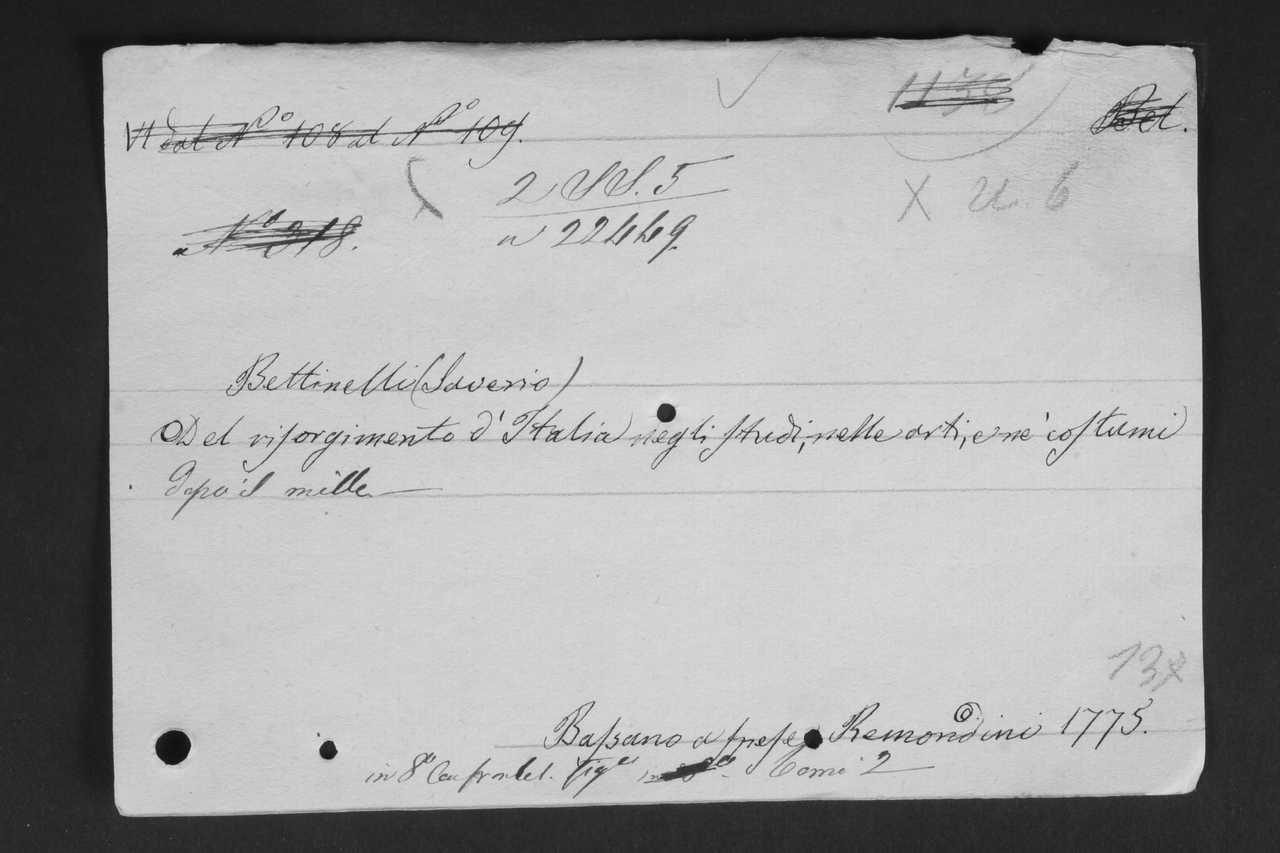 dal N° 108 al N° 109.
Bet.
2 SS. 5
X U. 6
N° 318.
n 22449.
Bettinelli (Saverio)
Del risorgimento d'Italia negli studi, nelle arti, e ne' costumi
dopo il mille
13x
Bassano a spese Remondini 1775.
in 8° con frontel. Tomi 2